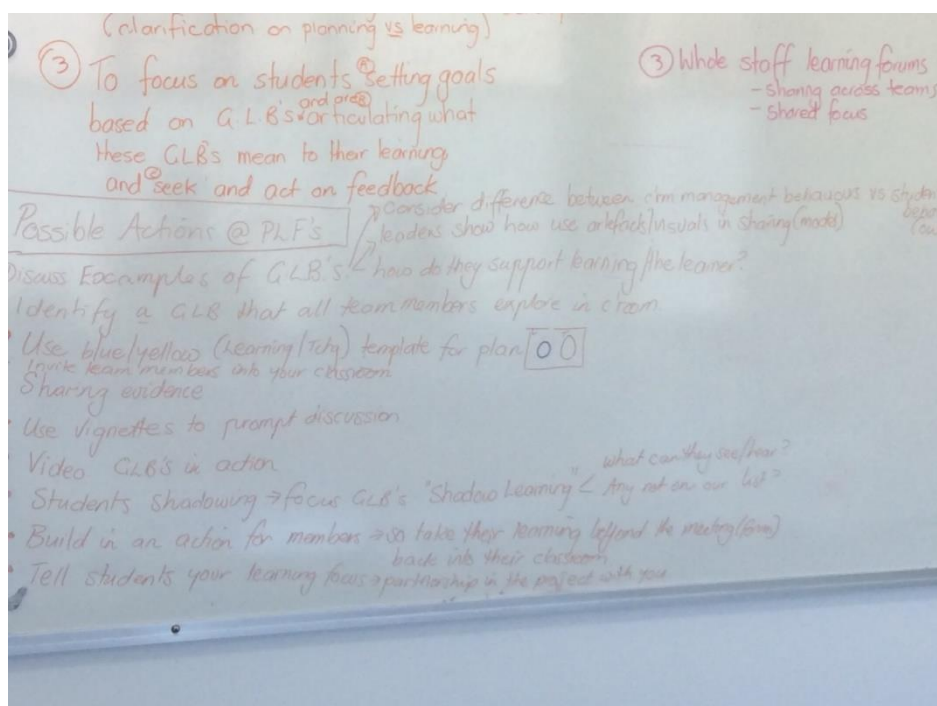 (clarification on planning vs learning)
③ To focus on students ① setting goals
based on G.L.B's and are ② articulating what
these GLB's mean to their learning
and ③ seek and act on feedback
③ Whole staff learning forums
- sharing across teams
- shared focus
Possible Actions @ PLF's
Consider difference between c/rm management behaviours vs
leaders show how use artefact/visuals in sharing (model)
Discuss Examples of GLB's < how do they support learning/the learner?
Identify a GLB that all team members explore in c'room
• Use blue/yellow (Learning/Tchg) template for plan
Invite team members into your classroom
Sharing evidence
• Use vignettes to prompt discussion
Video GLB's in action
what can they see/hear?
• Students Shadowing → focus GLB's "Shadow Learning" < Any not on our list?
• Build in an action for members → so take their learning beyond the meeting (forum)
back into their classroom
• Tell students your learning focus → partnership in the project with you